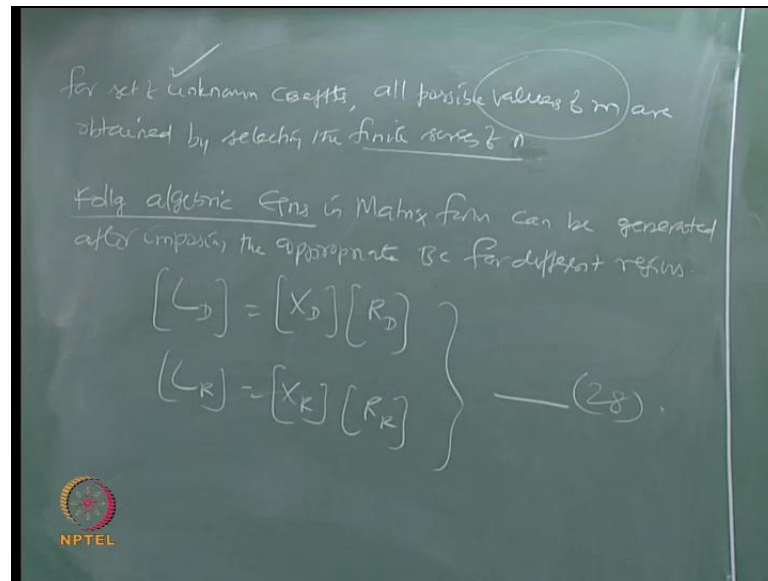 for set of unknown coeffts, all possible values of m are
obtained by selecting the finite series of n
Follg algebric Eqns in Matrix form can be generated
after imposing the appropriate BC for different regions.
[L_D] = [X_D] [R_D]
[L_R] = [X_R] [R_R] } — (28).
NPTEL